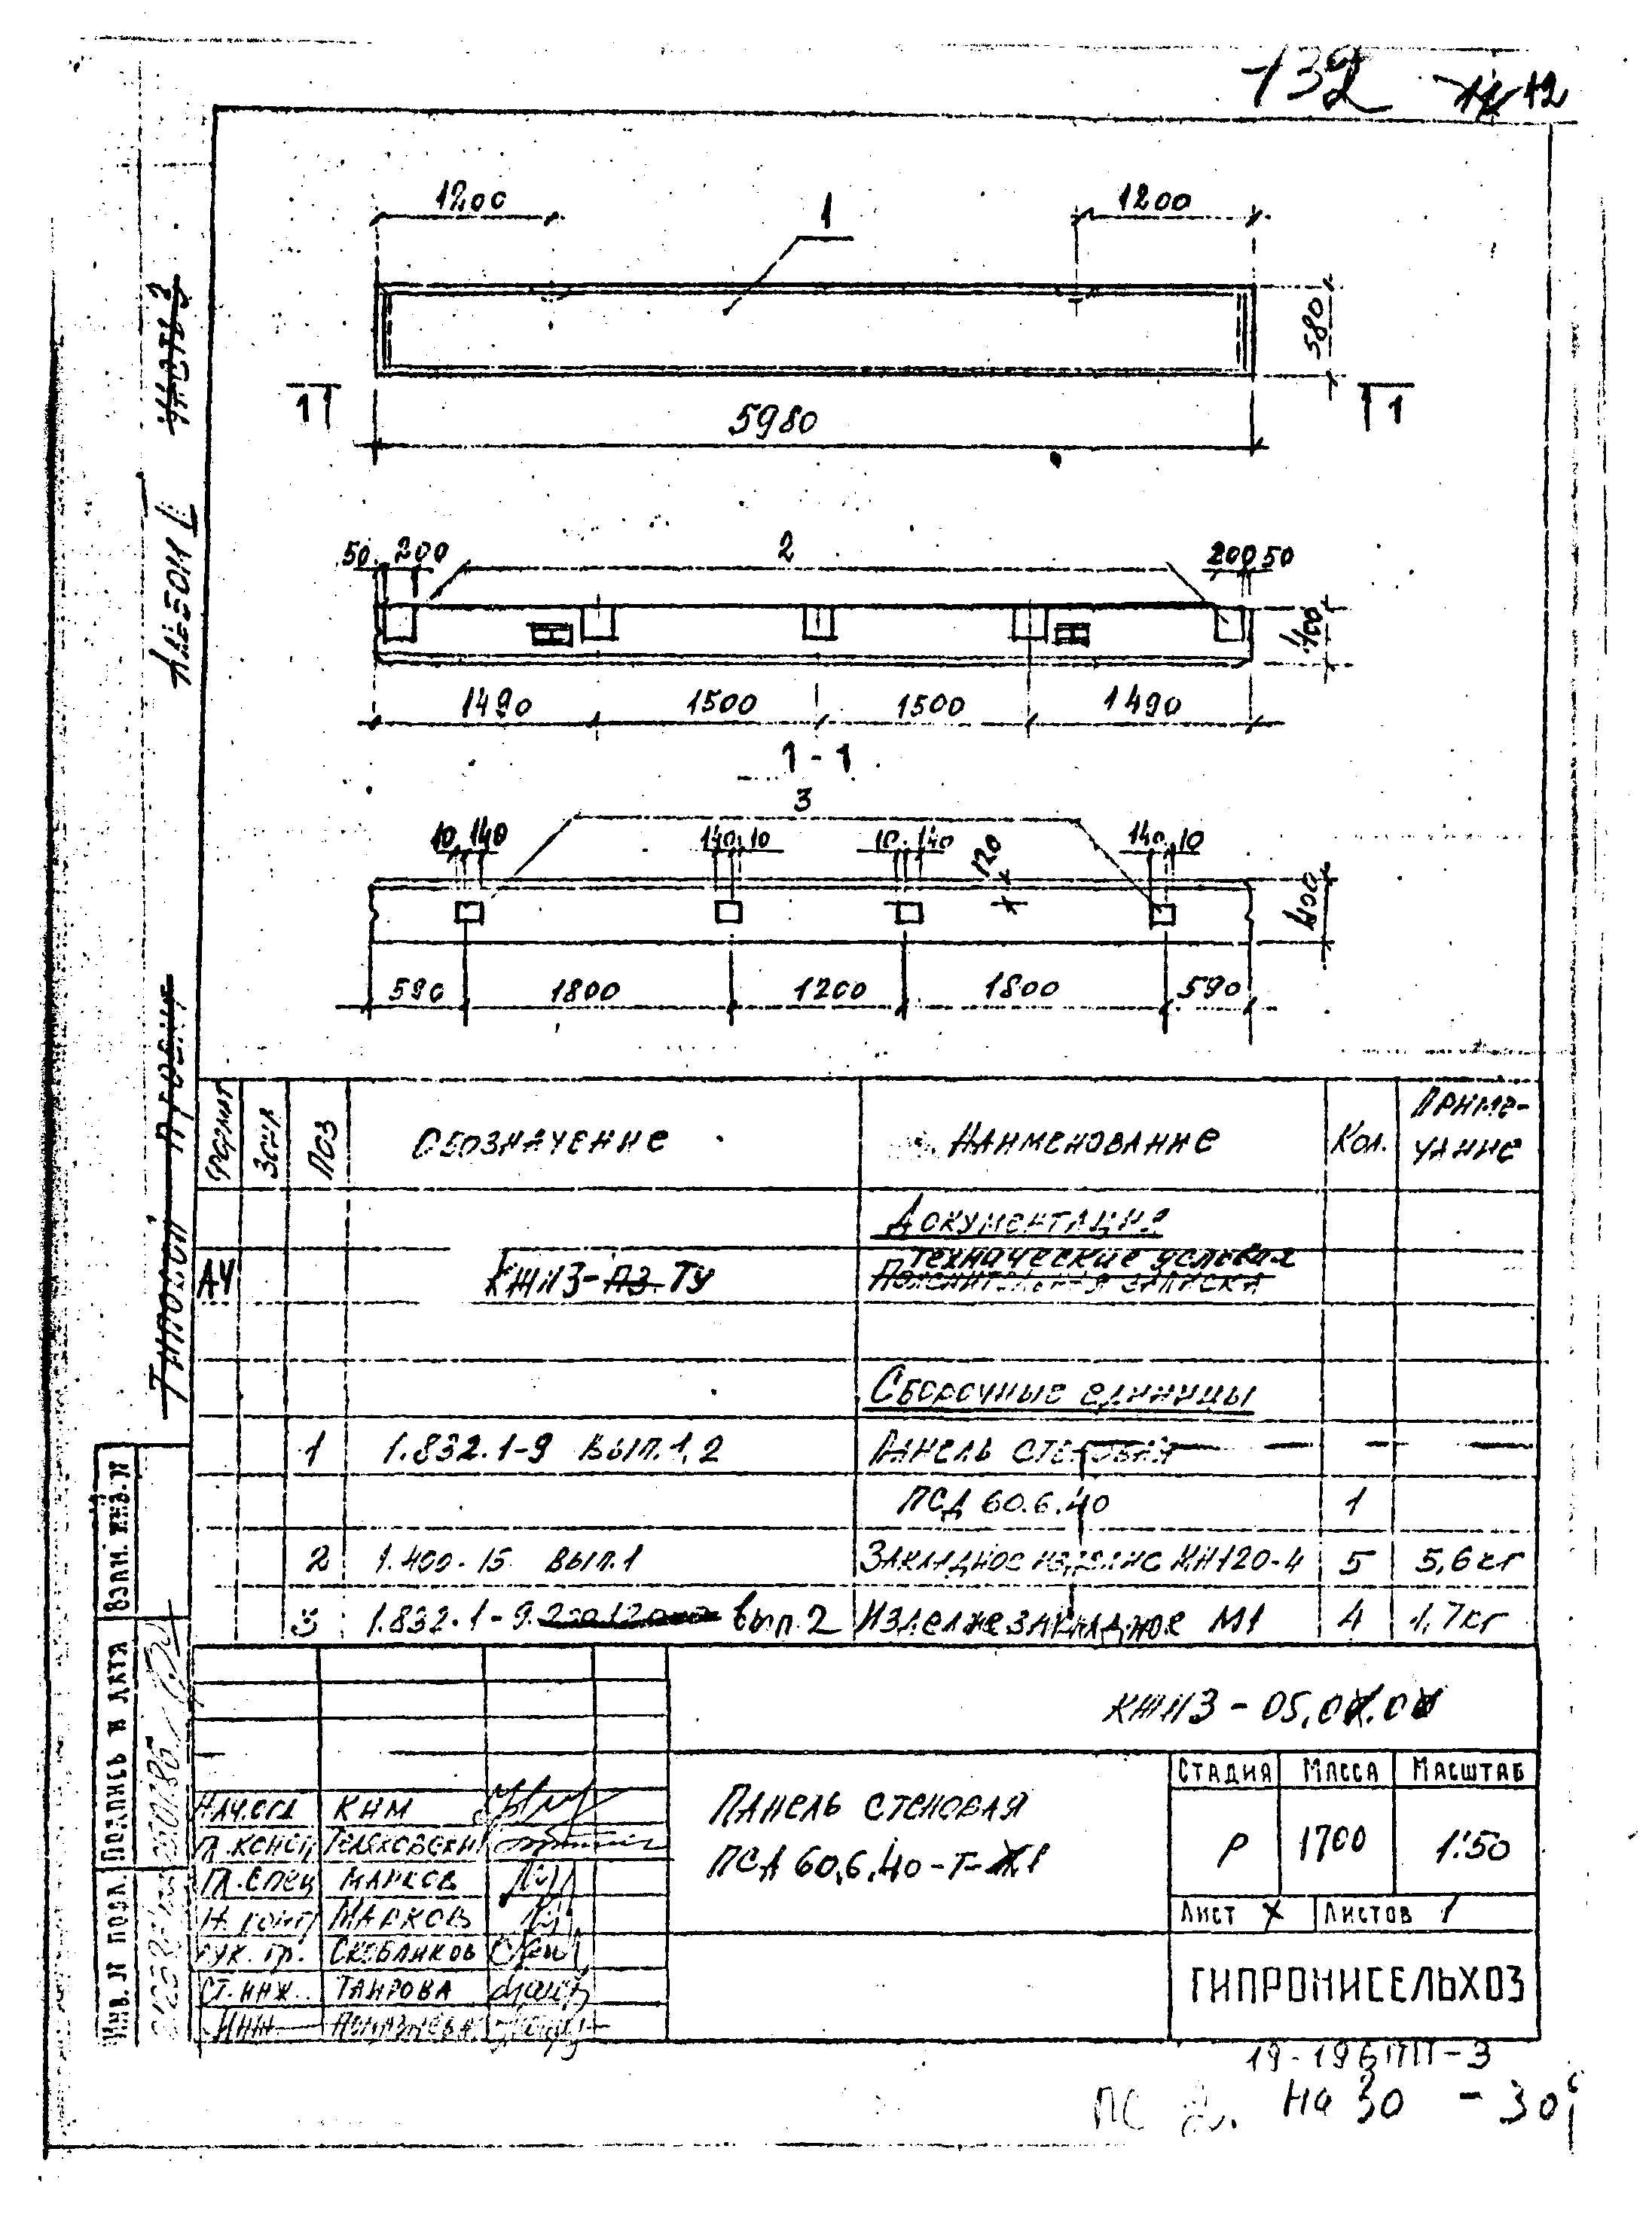 132 12
1200 1 1200
580
1 1
5980
50 200 2 200 50
400
1490 1500 1500 1490
1-1
3
10 140 140 10 10 140 120 140 10
400
590 1800 1200 1800 590
Альбом I
Типовой проект
Формат Зона Поз Обозначение Наименование Кол. Приме-
чание
Документация
А4 КЖИЗ-ПЗ ТУ Технические условия
Пояснительная записка
Сборочные единицы
1 1.832.1-9 Вып.1,2 Панель стеновая
ПСД 60.6.40 1
2 1.400-15 Вып.1 Закладное изделие МН120-4 5 5,6кг
3 1.832.1-9. вып.2 Изделие закладное М1 4 1,7кг
Взам. инв. №
Подпись и дата
Инв. № подл.
КЖИЗ-05.
Стадия Масса Масштаб
Панель стеновая
ПСД 60.6.40-Т-
Р 1700 1:50
Лист Листов 1
ГИПРОНИСЕЛЬХОЗ
Нач.отд Ким
Гл.конст
Гл.спец Марков
Н.контр Марков
Рук.гр. Скобликов
Ст.инж. Таирова
Инж
19-196ПП-3
ПС На 30 - 30